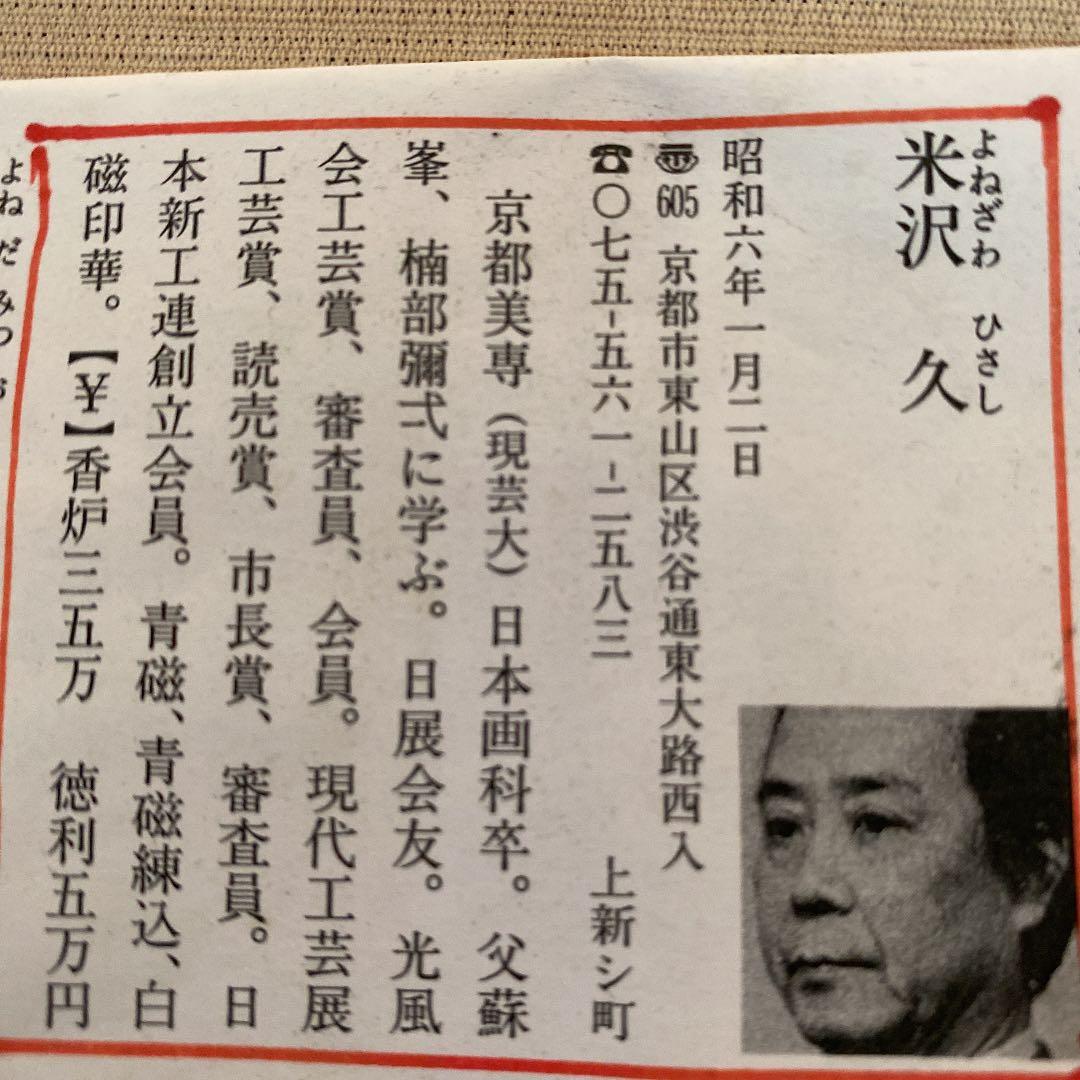 よねざわ ひさし
米沢 久
昭和六年一月二日
〠605 京都市東山区渋谷通東大路西入
上新シ町
☎〇七五-五六一-二五八三
京都美専(現芸大)日本画科卒。父蘇
峯、楠部彌弌に学ぶ。日展会友。光風
会工芸賞、審査員、会員。現代工芸展
工芸賞、読売賞、市長賞、審査員。日
本新工連創立会員。青磁、青磁練込、白
磁印華。【¥】香炉三五万 徳利五万円
よねだ みつ